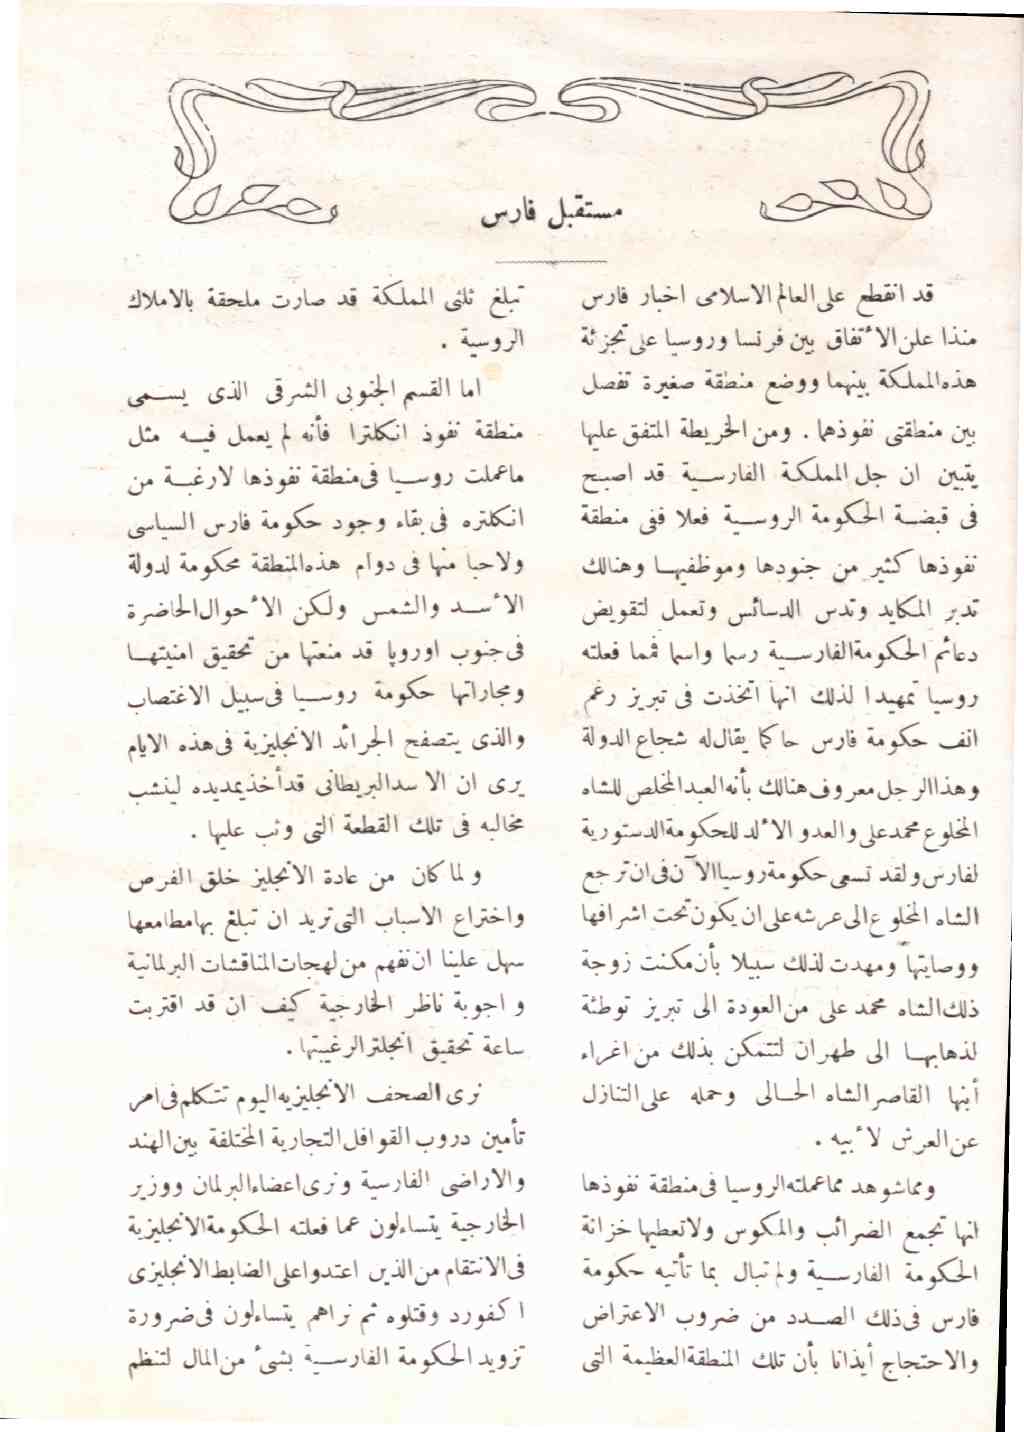 مستقبل فارس
قد انقطع على العالم الاسلامى اخبار فارس
منذا علن الأتفاق بين فرنسا وروسيا على تجزئة
هذه المملكة بينهما ووضع منطقة صغيرة تفصل
بين منطقتى نفوذهما . ومن الخريطة المتفق عليها
يتبين ان جل المملكة الفارسية قد اصبح
فى قبضة الحكومة الروسية فعلا ففى منطقة
نفوذها كثير من جنودها وموظفيها وهنالك
تدبر المكايد وتدس الدسائس وتعمل لتقويض
دعائم الحكومة الفارسية رسما واسما فمما فعلته
روسيا تمهيدا لذلك انها اتخذت فى تبريز رغم
انف حكومة فارس حاكما يقال له شجاع الدولة
وهذا الرجل معروف هنالك بأنه العبد المخلص للشاه
المخلوع محمد على والعدو الألد للحكومة الدستورية
لفارس ولقد تسعى حكومة روسيا الآن فى ان ترجع
الشاه المخلوع الى عرشه على ان يكون تحت اشرافها
ووصايتها ومهدت لذلك سبيلا بأن مكنت زوجة
ذلك الشاه محمد على من العودة الى تبريز توطئة
لذهابها الى طهران لتتمكن بذلك من اغراء
أبنها القاصر الشاه الحالى وحمله على التنازل
عن العرش لأبيه .
ومماشوهد مما عملته الروسيا فى منطقة نفوذها
انها تجمع الضرائب والمكوس ولاتعطيها خزانة
الحكومة الفارسية ولم تبال بما تأتيه حكومة
فارس فى ذلك الصدد من ضروب الاعتراض
والاحتجاج أيذانا بأن تلك المنطقة العظيمة التى
تبلغ ثلثى المملكة قد صارت ملحقة بالاملاك
الروسية .
اما القسم الجنوبى الشرقى الذى يسمى
منطقة نفوذ انكلترا فأنه لم يعمل فيه مثل
ماعملت روسيا فى منطقة نفوذها لارغبة من
انكلتره فى بقاء وجود حكومة فارس السياسى
ولاحبا منها فى دوام هذه المنطقة محكومة لدولة
الأسد والشمس ولكن الأحوال الحاضرة
فى جنوب اوروپا قد منعتها من تحقيق امنيتها
ومجاراتها حكومة روسيا فى سبيل الاغتصاب
والذى يتصفح الجرائد الانجليزية فى هذه الايام
يرى ان الاسد البريطانى قد أخذ يمد يده لينشب
مخالبه فى تلك القطعة التى وثب عليها .
ولما كان من عادة الانجليز خلق الفرص
واختراع الاسباب التى تريد ان تبلغ بها مطامعها
سهل علينا ان نفهم من لهجات المناقشات البرلمانية
واجوبة ناظر الخارجية كيف ان قد اقتربت
ساعة تحقيق انجلترا لرغبيتها .
نرى الصحف الانجليزيه اليوم تتكلم فى امر
تأمين دروب القوافل التجارية المختلفة بين الهند
والاراضى الفارسية ونرى اعضاء البرلمان ووزير
الخارجية يتساءلون عما فعلته الحكومة الانجليزية
فى الانتقام من الذين اعتدوا على الضابط الانجليزى
اكفورد وقتلوه ثم نراهم يتساءلون فى ضرورة
تزويد الحكومة الفارسية بشىء من المال لتنظم